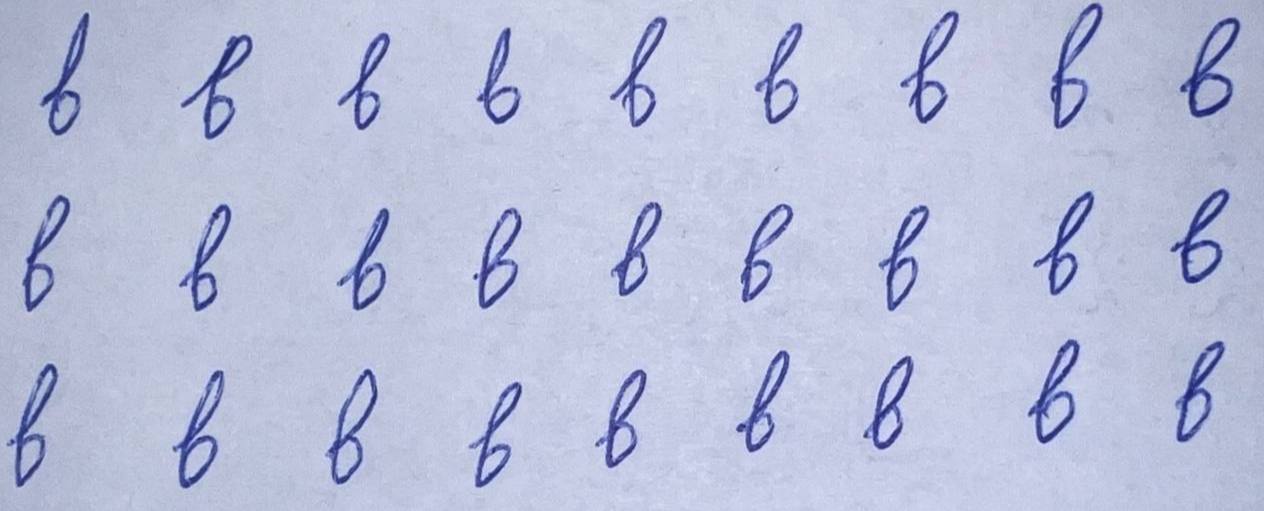 в в в в в в в в в
в в в в в в в в в
в в в в в в в в в